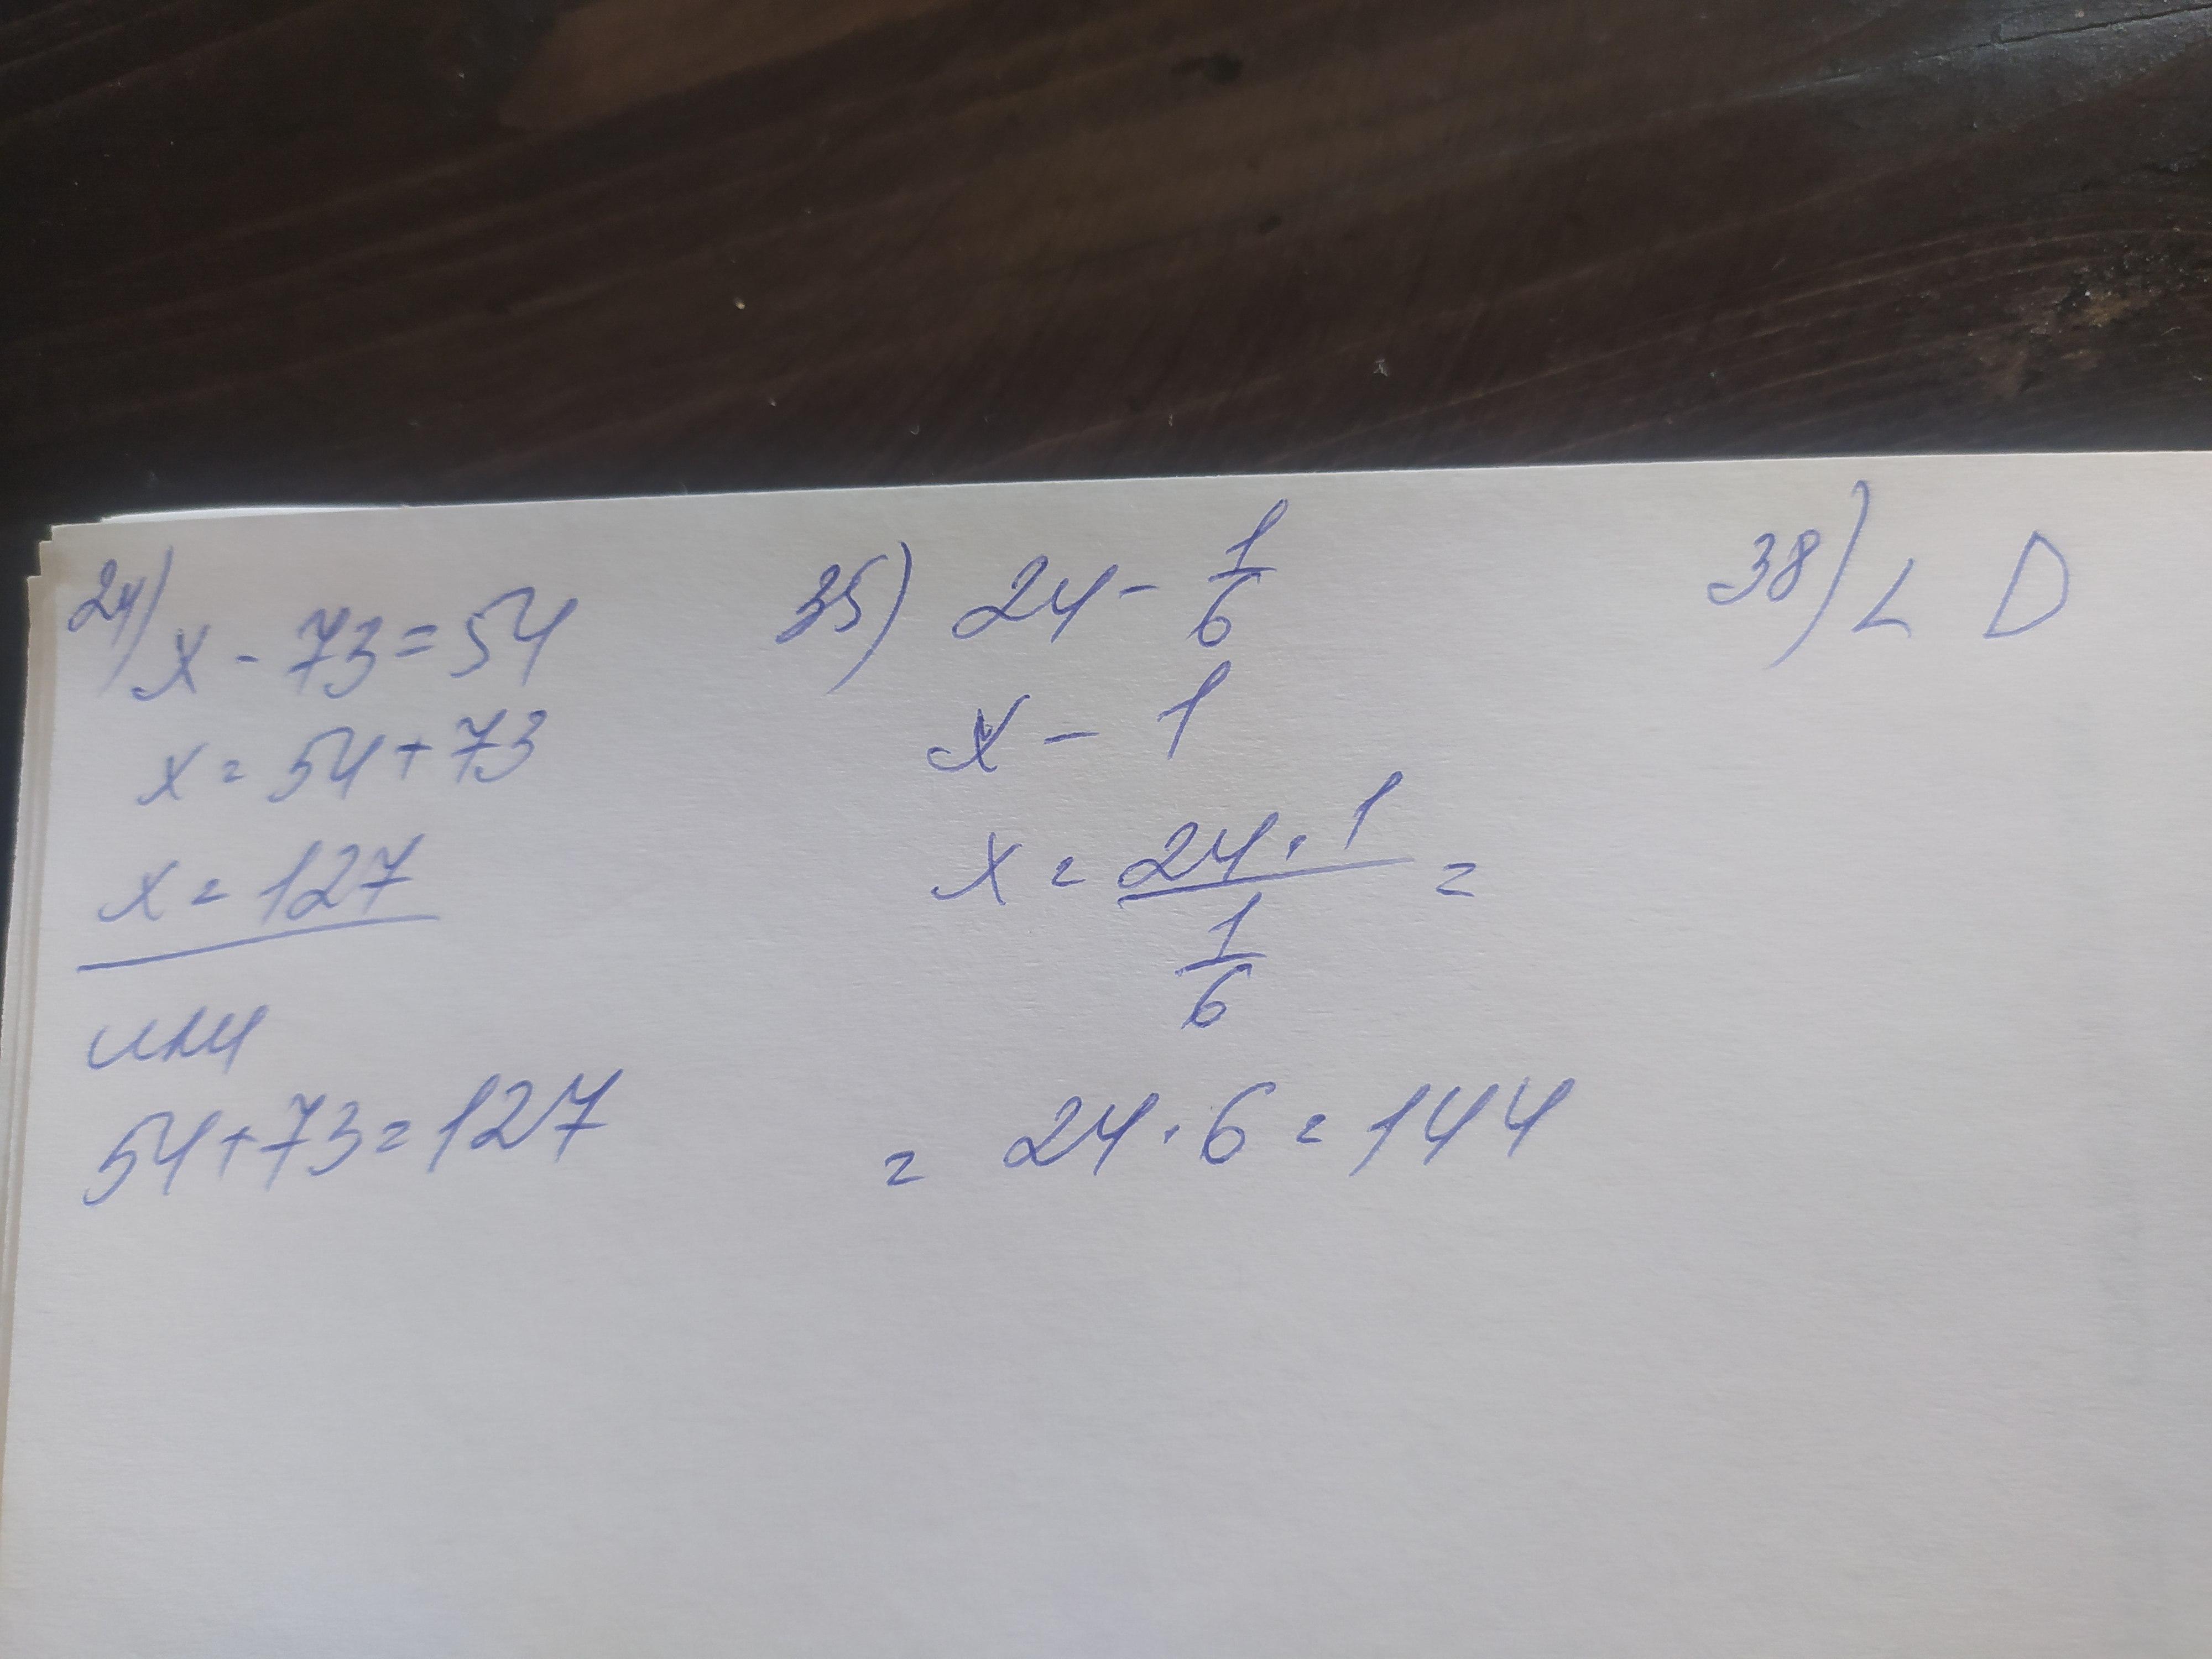 24)
x - 73 = 54
x = 54 + 73
x = 127
или
54 + 73 = 127
35) 24 - 1/6
x - 1
x = (24 · 1)/(1/6) =
= 24 · 6 = 144
38) ∠ D